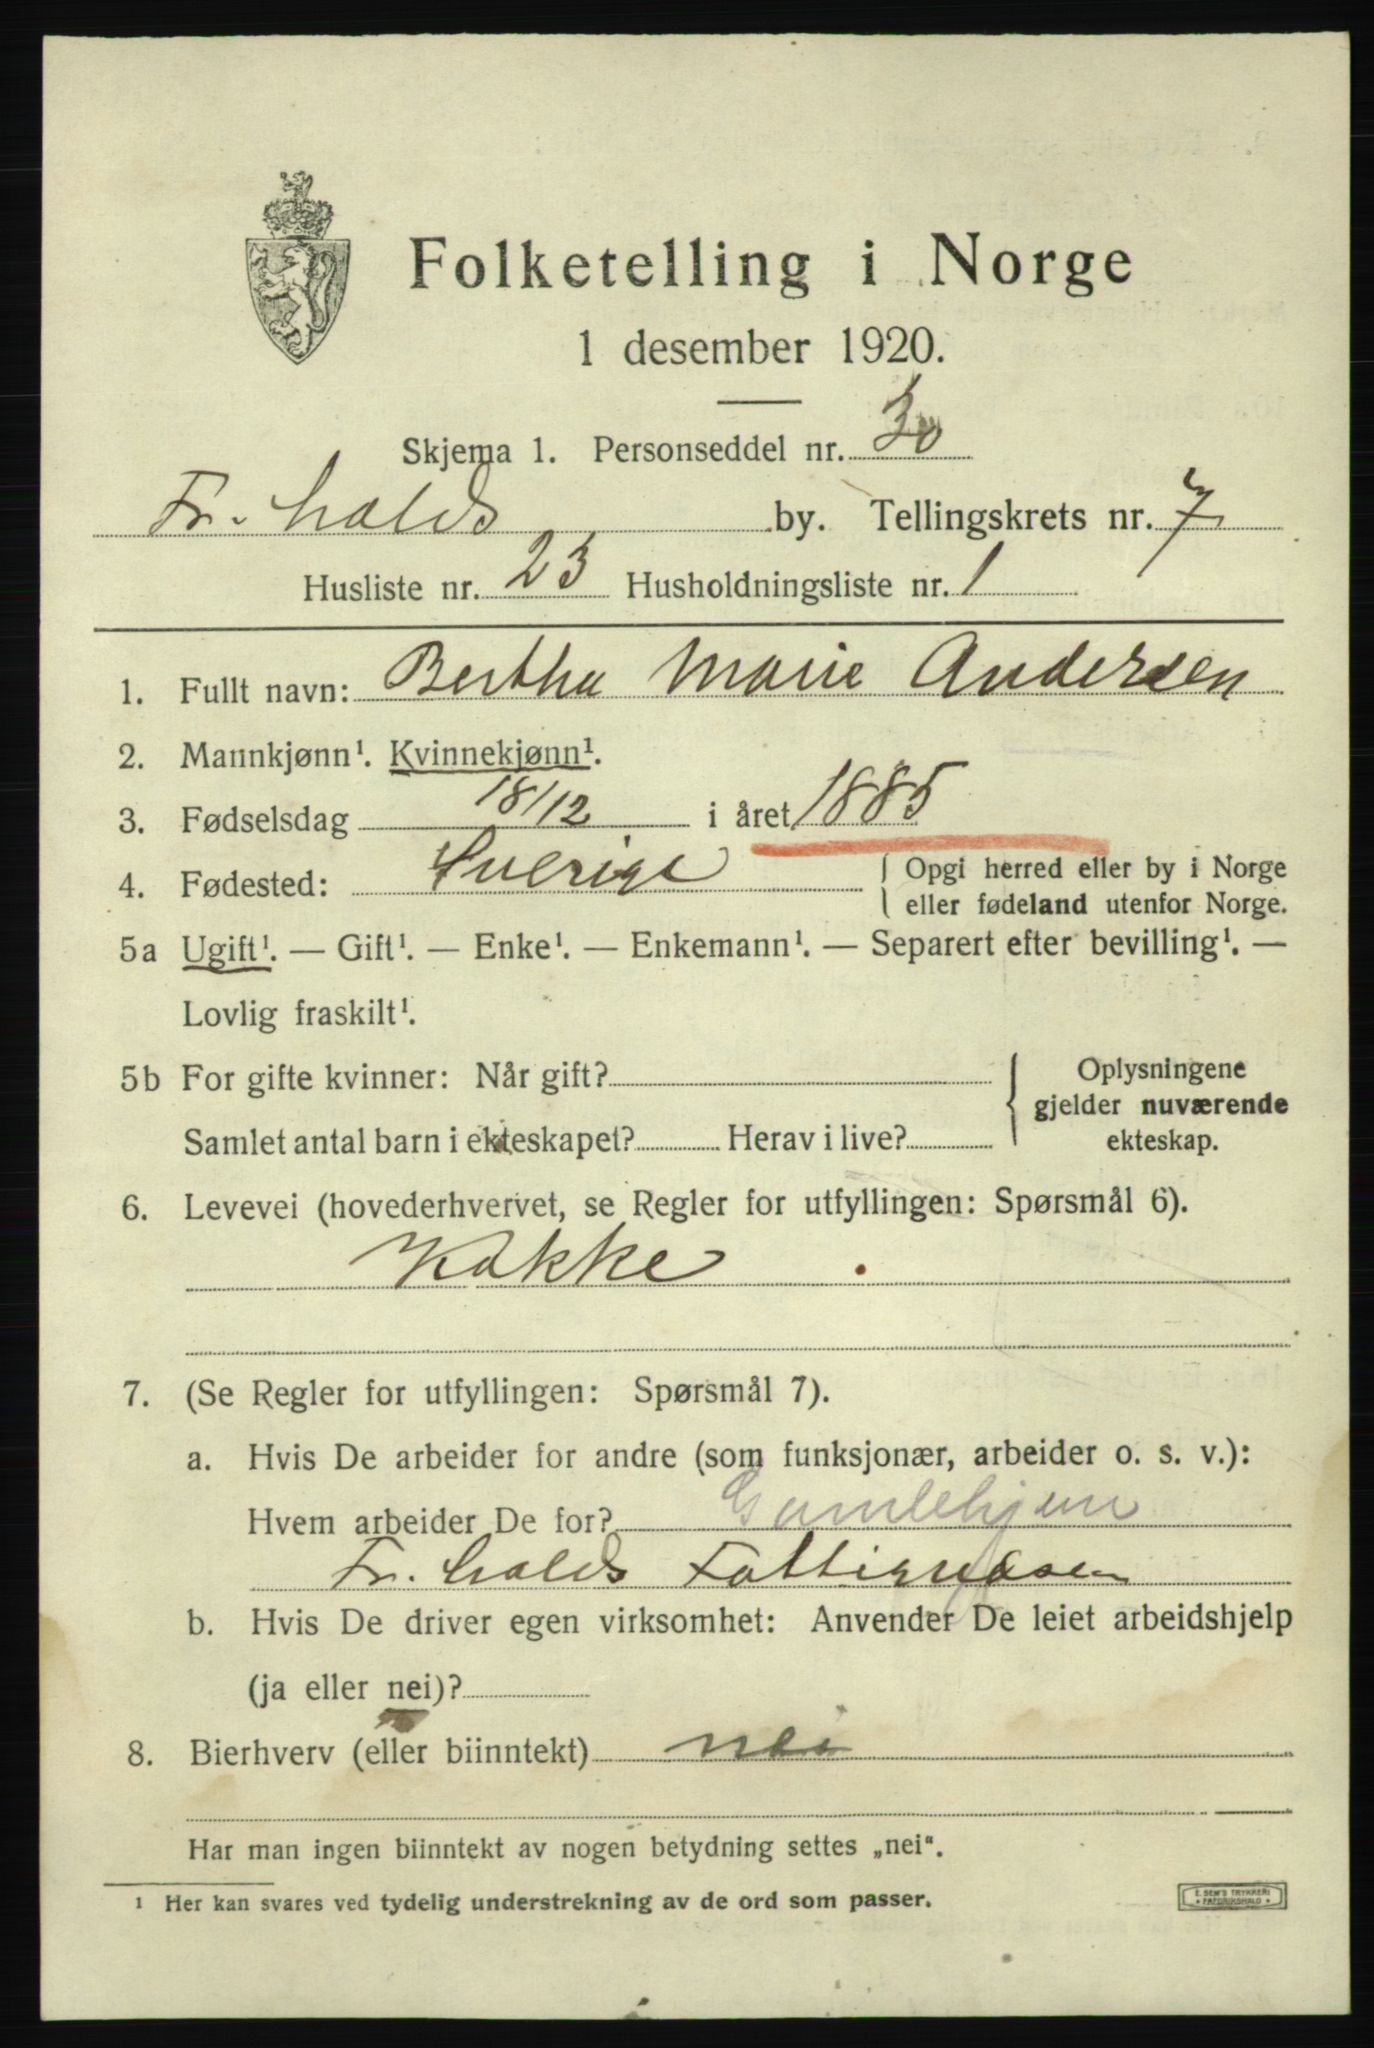 Folketelling i Norge
1 desember 1920.
Skjema 1. Personseddel nr. 30
Fr.halds by. Tellingskrets nr. 7
Husliste nr. 23 Husholdningsliste nr. 1
1. Fullt navn: Bertha Marie Andersen
2. Mannkjønn¹. Kvinnekjønn¹.
3. Fødselsdag 18/12 i året 1885
4. Fødested: Sverige { Opgi herred eller by i Norge
eller fødeland utenfor Norge.
5a Ugift¹. — Gift¹. — Enke¹. — Enkemann¹. — Separert efter bevilling¹. —
Lovlig fraskilt¹.
5b For gifte kvinner: Når gift? { Oplysningene
gjelder nuværende
Samlet antal barn i ekteskapet? Herav i live? ekteskap.
6. Levevei (hovederhvervet, se Regler for utfyllingen: Spørsmål 6).
Kokke
7. (Se Regler for utfyllingen: Spørsmål 7).
a. Hvis De arbeider for andre (som funksjonær, arbeider o. s. v.):
Hvem arbeider De for? Gamlehjem
Fr.halds Fattigvæsen
b. Hvis De driver egen virksomhet: Anvender De leiet arbeidshjelp
(ja eller nei)?
8. Bierhverv (eller biinntekt) nei
Har man ingen biinntekt av nogen betydning settes „nei“.
¹ Her kan svares ved tydelig understrekning av de ord som passer.
E. SEM'S TRYKKERI
• FREDRIKSHALD •